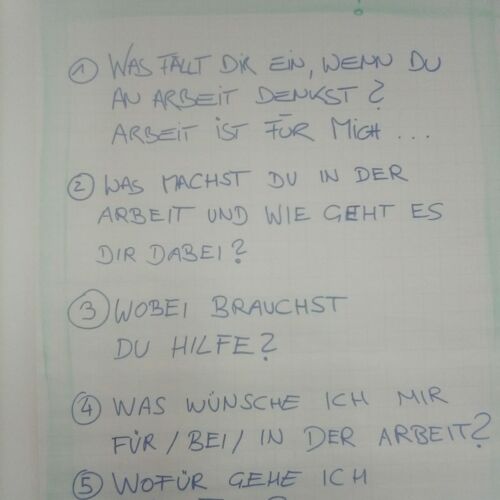 ① WAS FÄLLT DIR EIN, WENN DU
AN ARBEIT DENKST?
ARBEIT IST FÜR MICH ...
② WAS MACHST DU IN DER
ARBEIT UND WIE GEHT ES
DIR DABEI?
③ WOBEI BRAUCHST
DU HILFE?
④ WAS WÜNSCHE ICH MIR
FÜR / BEI / IN DER ARBEIT?
⑤ WOFÜR GEHE ICH